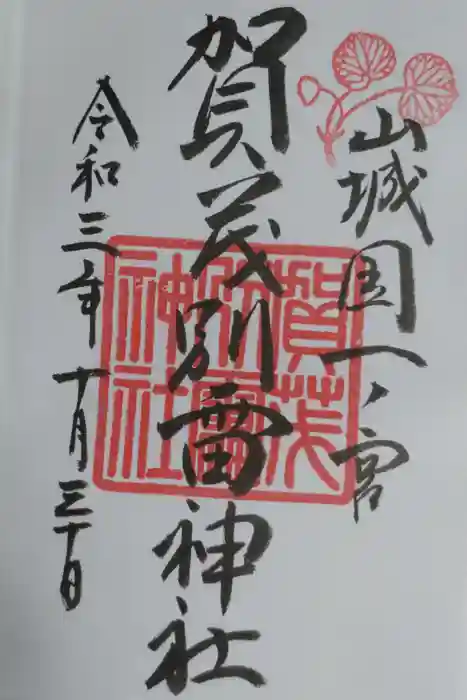 山城国一ノ宮
賀茂別雷神社
賀茂
別雷
神社
令和三年十月三十日